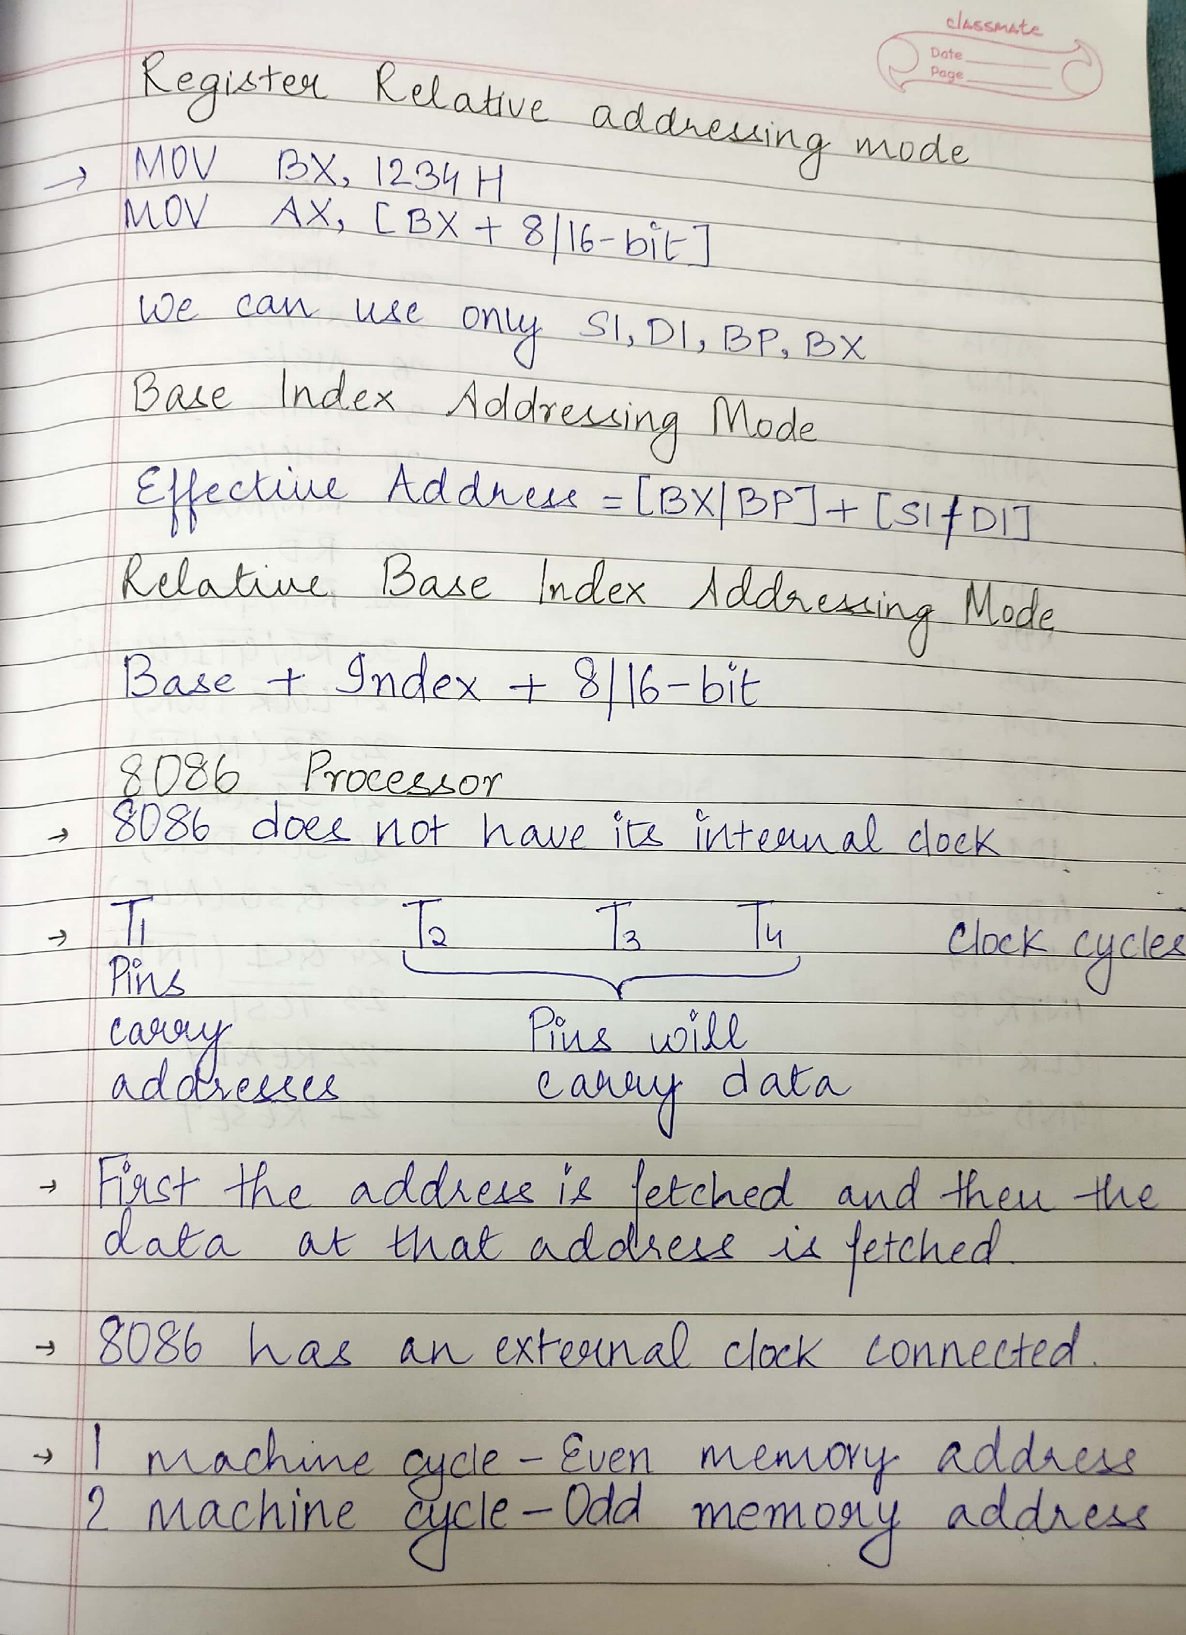 classmate
Date
Page
Register Relative addressing mode
→ MOV BX, 1234 H
MOV AX, [BX + 8/16-bit]
we can use only SI, DI, BP, BX
Base Index Addressing Mode
Effective Address = [BX/BP] + [SI/DI]
Relative Base Index Addressing Mode
Base + Index + 8/16-bit
8086 Processor
→ 8086 does not have its internal clock
→ T1 T2 T3 T4 Clock cycles
Pins
carry Pins will
addresses carry data
→ First the address is fetched and then the
data at that address is fetched.
→ 8086 has an external clock connected.
→ 1 machine cycle - Even memory address
2 machine cycle - Odd memory address